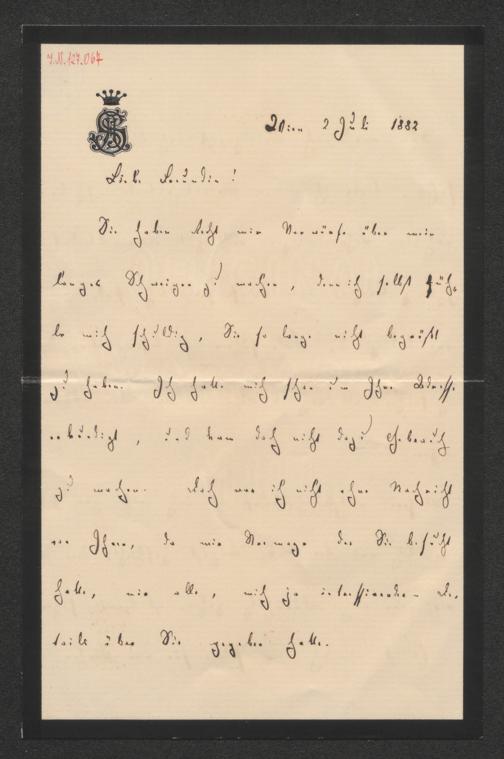 I.N. 127.067
Wien 2 Juli 1882
Liebe Freundin!
Sie haben Recht mir Vorwürfe über mein
langes Schweigen zu machen, denn ich selbst füh-
le mich schuldig, Sie so lange nicht begrüßt
zu haben. Ich hatte mich schon um Ihre Adresse
erkundigt, und kam doch nicht dazu Gebrauch
zu machen. Doch war ich nicht ohne Nachricht
von Ihnen, da mir der Sie besucht
hatte, mir alle, mich ja interessierenden De-
tails über Sie gegeben hatte.